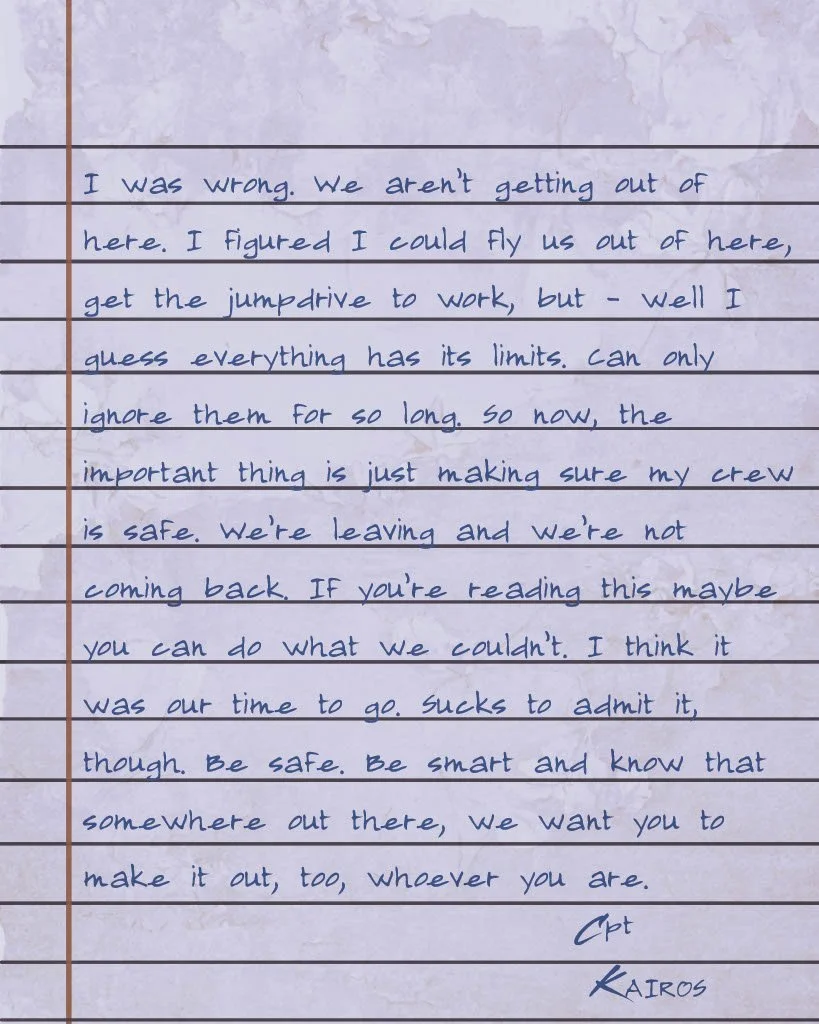 I was wrong. We aren't getting out of
here. I figured I could fly us out of here,
get the jumpdrive to work, but - well I
guess everything has its limits. Can only
ignore them for so long. So now, the
important thing is just making sure my crew
is safe. We're leaving and we're not
coming back. If you're reading this maybe
you can do what we couldn't. I think it
was our time to go. Sucks to admit it,
though. Be safe. Be smart and know that
somewhere out there, we want you to
make it out, too, whoever you are.
Cpt
KAIROS